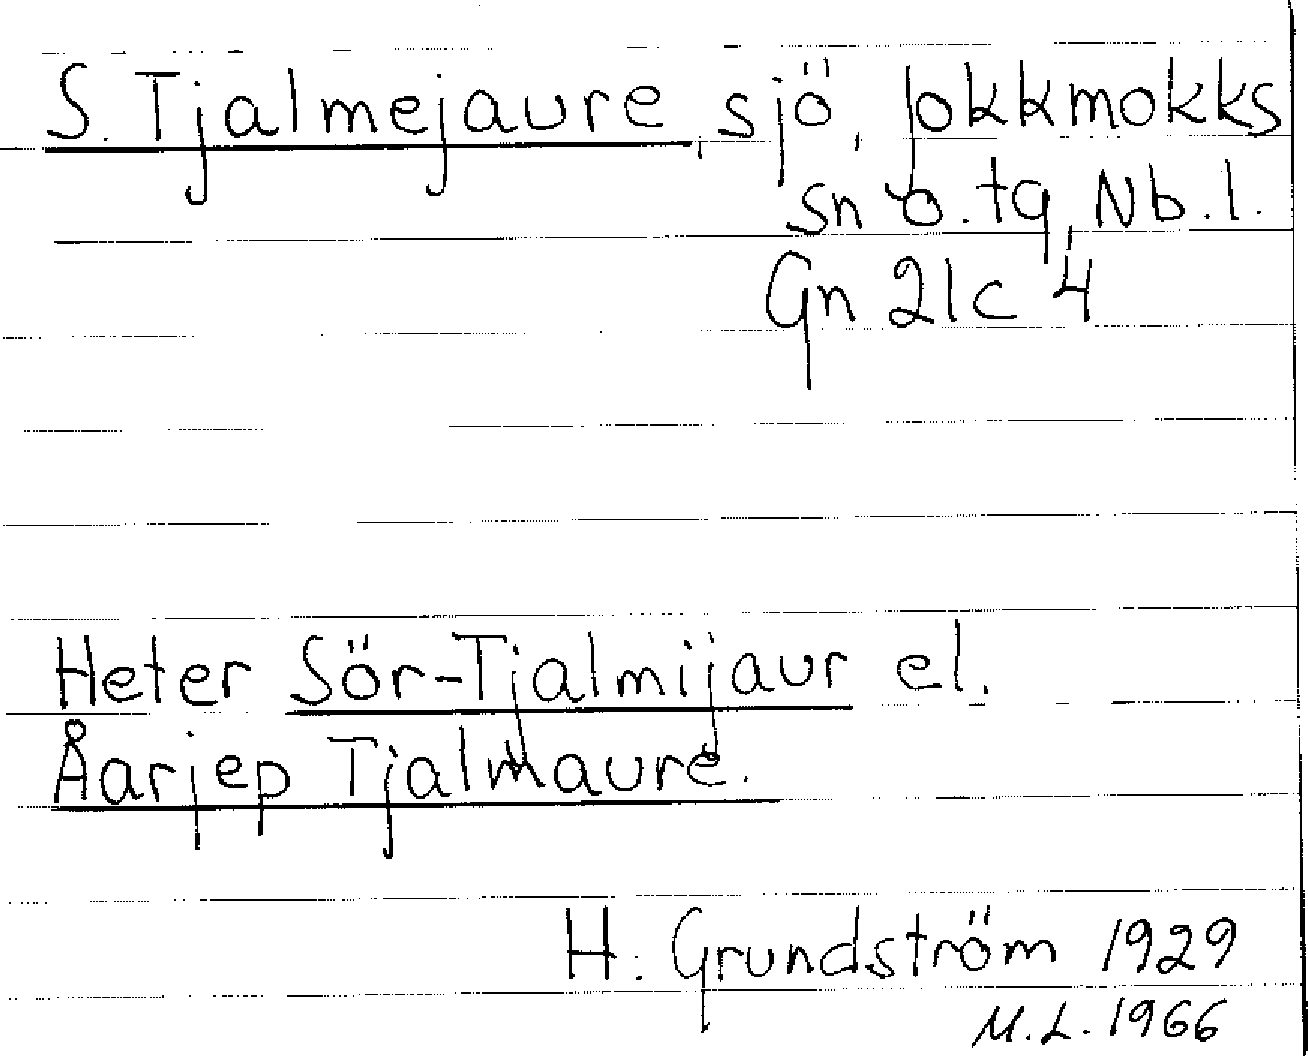 S. Tjalmejaure, sjö, Jokkmokks
sn o. tg, Nb. l.
Gn 21c 4
Heter Sör-Tjalmijaur el.
Åarjep Tjalmaure.
H. Grundström 1929
M.L. 1966